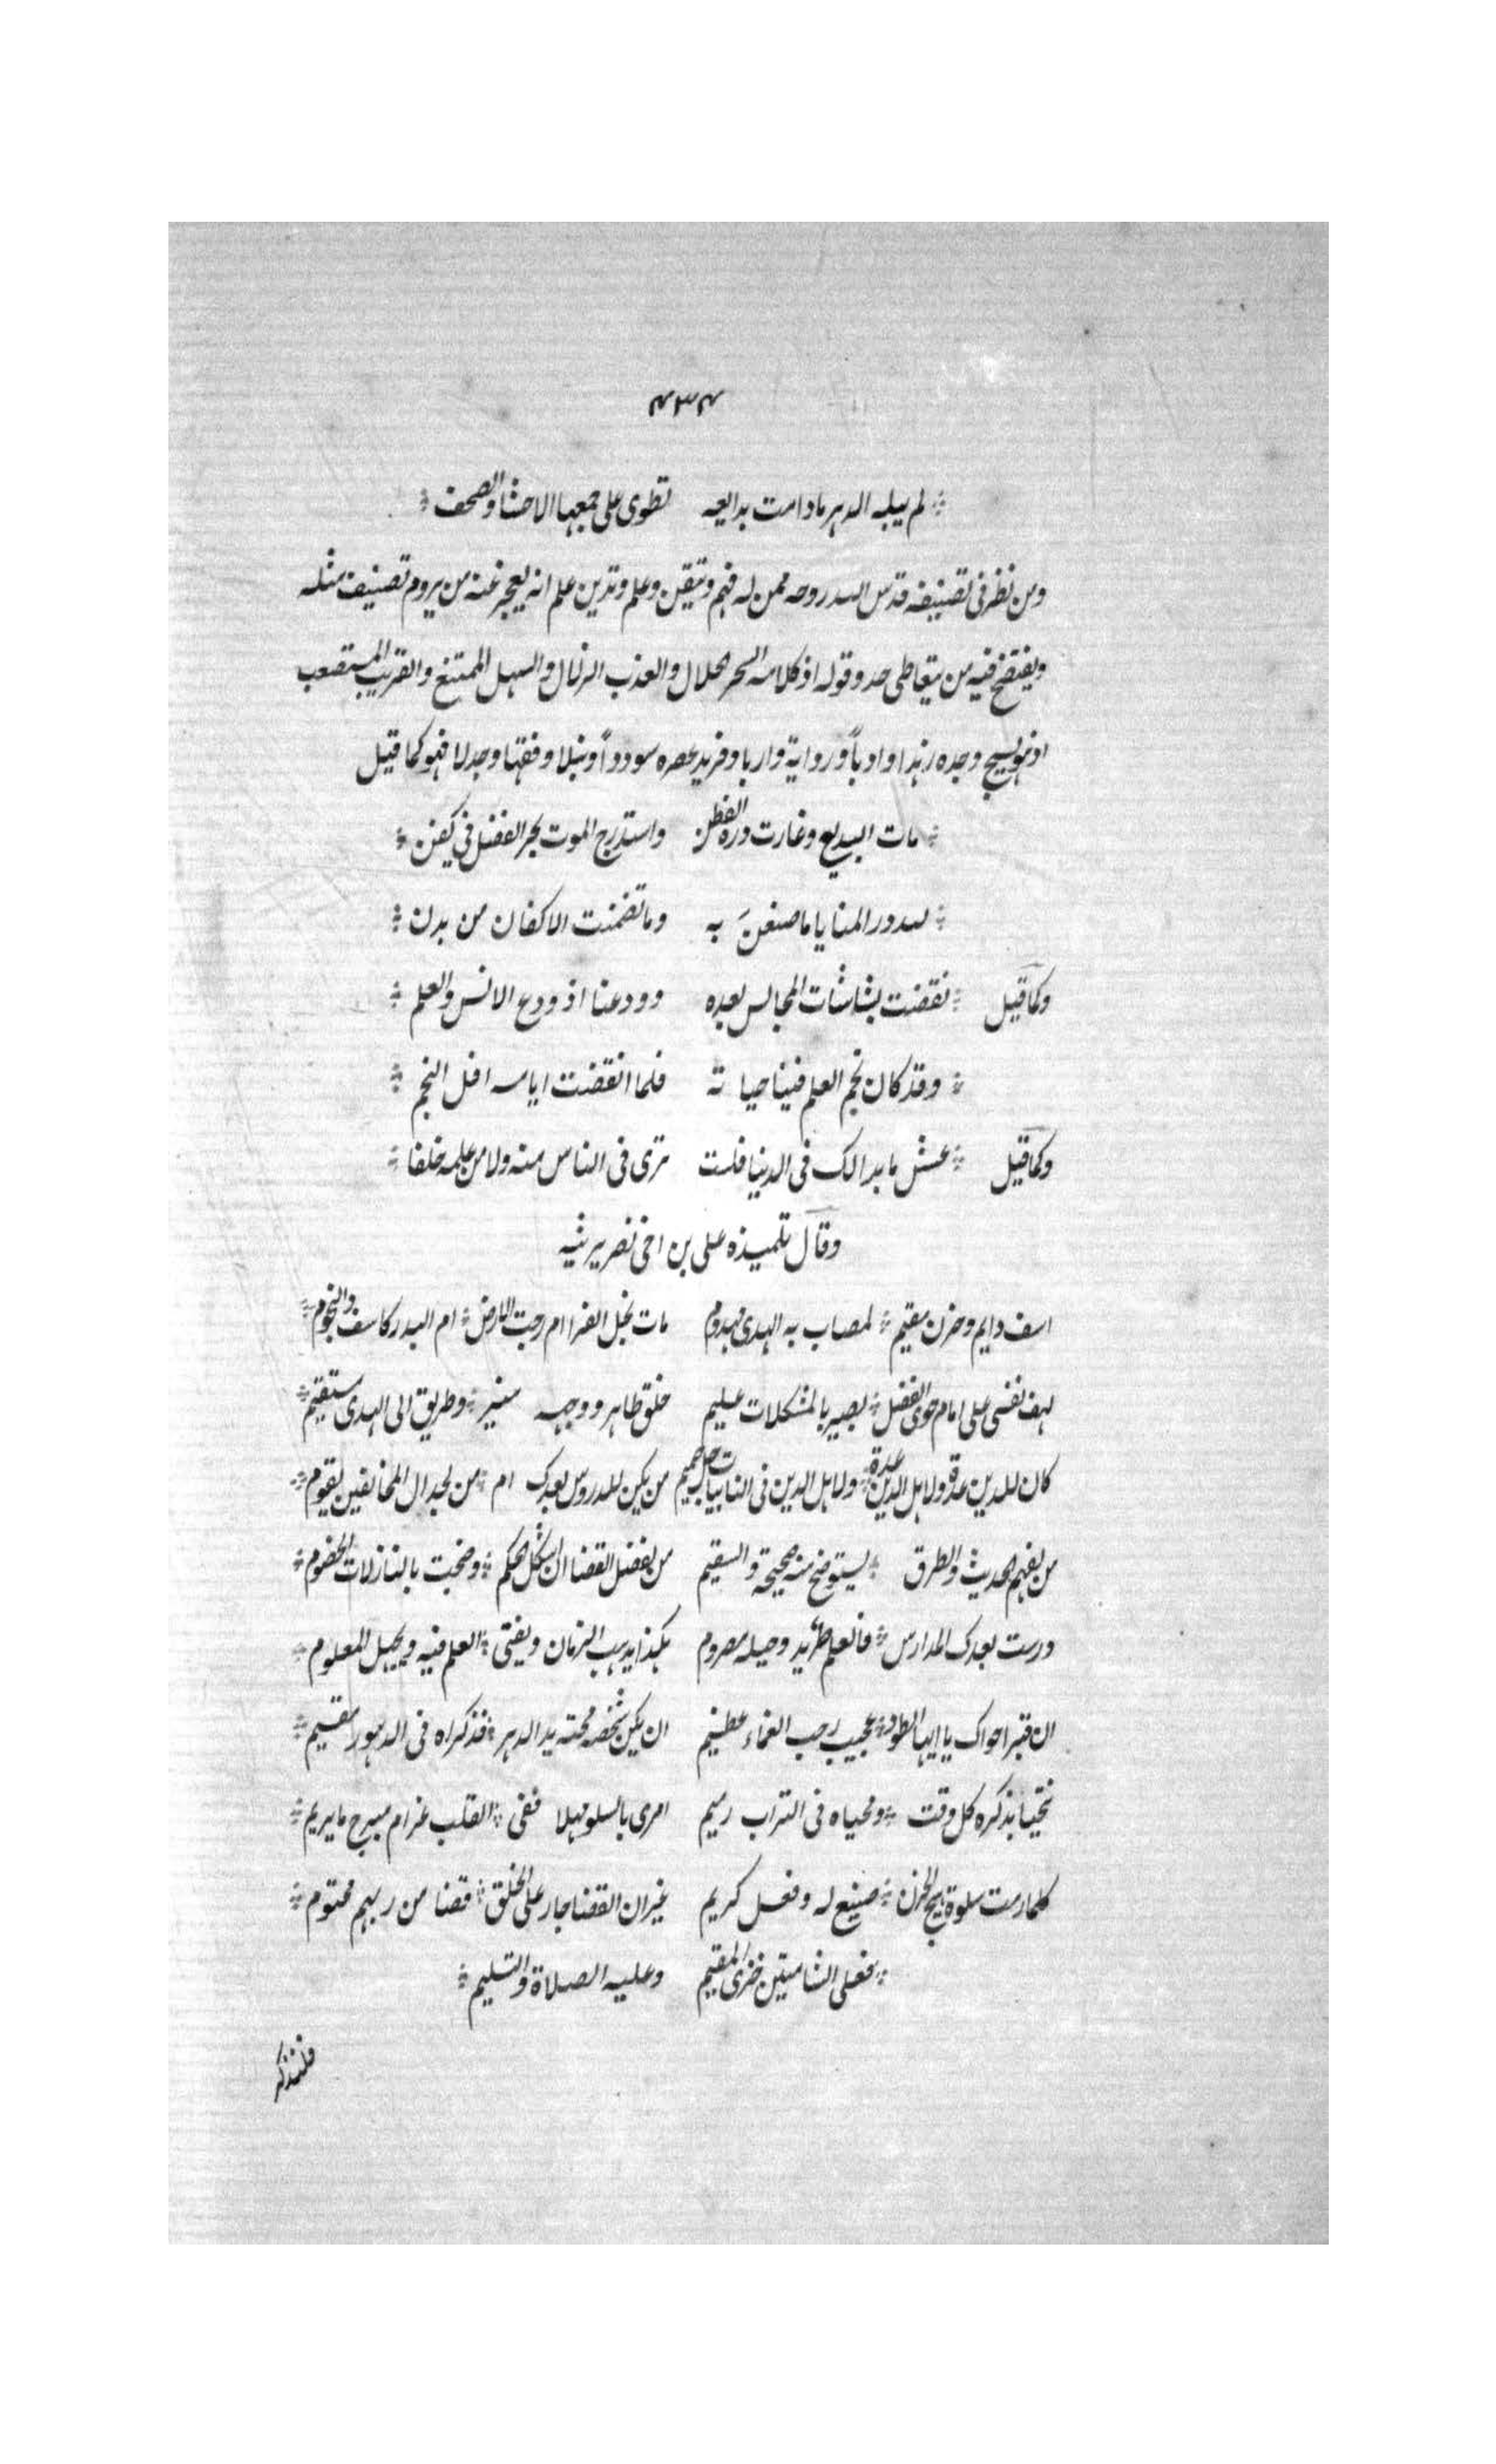 ٤٣٤
لم يبله الدهر مادامت بدايعه تطوى على جمعها الاحشا والصحف
ومن نظر فى تصنيفه قدس الله روحه ممن له فهم وتيقن وعلم وتدين علم انه يعجز عنه من يروم تصنيف مثله
ويفتضح فيه من يتعاطى حد وقوله اذ كلامه السحر الحلال والعذب الزلال والسهل الممتنع والقريب المستصعب
اذ هو نسيج وحده زهدا وادباً ورواية واربا وفريد عصره سودداً ونبلا وفقها وجدلا فهو كما قيل
مات البديع وغارت درة الفطن واستدرج الموت بحر الفضل فى كفن
لله در المنايا ما صنعنَ به وما تضمنت الاكفان من بدن
وكما قيل نقضت بشاشات المجالس بعده وودعنا اذ ودع الانس والعلم
وقد كان نجم العلم فينا حياته فلما انقضت ايامه افل النجم
وكما قيل عش ما بدا لك فى الدنيا فلست ترى فى الناس منه ولا من علمه خلفا
وقال تلميذه على بن اخى نصر يرثيه
اسف دايم وحزن مقيم لمصاب به الهدى مهدوم مات نجل الفرا ام رجت الارض ام البدر كاسف والنجوم
لهف نفسى على امام حوى الفضل بصير بالمشكلات عليم خلق طاهر ووجه منير وطريق الى الهدى مستقيم
كان للدين عدة ولاهل الدين عدة ولاهل الدين فى النايبات خل حميم من يكن للدروس بعدك ام من لجدال المخالفين يقوم
من لفهم الحديث والطرق ليستوضح منه صحيحة والسقيم من لفضل القضا ان اشكل الحكم وضجت بالنازلات الخصوم
درست بعدك المدارس فالعلم طريد وحبله مصروم هكذا يذهب الزمان ويفنى العلم فيه ويجهل المعلوم
ان قبرا حواك يا ايها الطود عجيب رحب الغماء عظيم ان يكن شخصه محته يد الدهر فذكراه فى الدهور مقيم
نتحيا بذكره كل وقت ومحياه فى التراب رميم امرى بالسلو مهلا ففى القلب غرام مبرح ما يريم
كلما رمت سلوة هيج الحزن صنيع له وفعل كريم غير ان القضا جار على الخلق قضا من ربهم محتوم
فعلى الشامتين خزى المقيم وعليه الصلاة والتسليم
فلنذكر